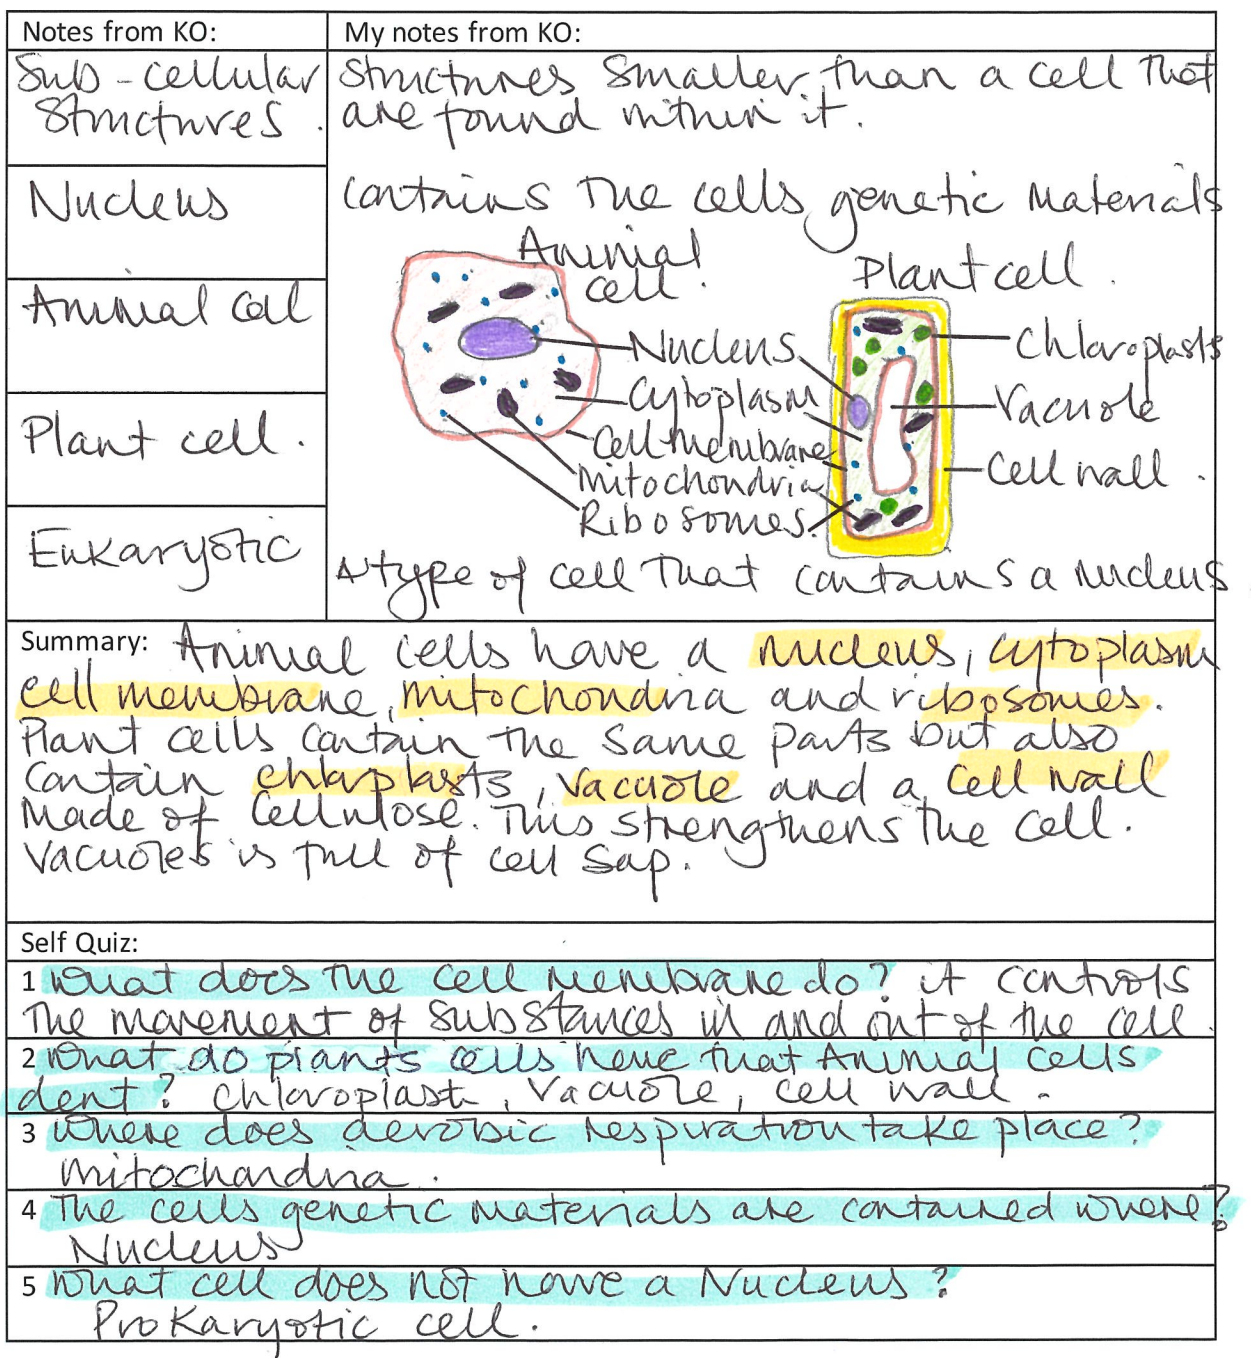 Notes from KO:
My notes from KO:
Sub-cellular
Structures.
Structures smaller than a cell that
are found within it.
Nucleus
contains the cells genetic materials
Animal cell
Plant cell.
Eukaryotic
Animal
cell.
Plant cell.
Nucleus
Cytoplasm
Cell membrane
Mitochondria
Ribosomes.
Chloroplasts
Vacuole
Cell wall.
A type of cell that contains a nucleus
Summary: Animal cells have a nucleus, cytoplasm
cell membrane, mitochondria and ribosomes.
Plant cells contain the same parts but also
contain chlaplasts, vacuole and a cell wall
made of cellulose. This strengthens the cell.
Vacuoles is full of cell sap.
Self Quiz:
1 What does the cell membrane do? it controls
the movement of substances in and out of the cell.
2 What do plants cells have that Animal cells
dent? chloroplast, vacuole, cell wall.
3 Where does aerobic respiration take place?
mitochondria.
4 The cells genetic materials are contained where?
Nucleus
5 What cell does not have a Nucleus?
Prokaryotic cell.